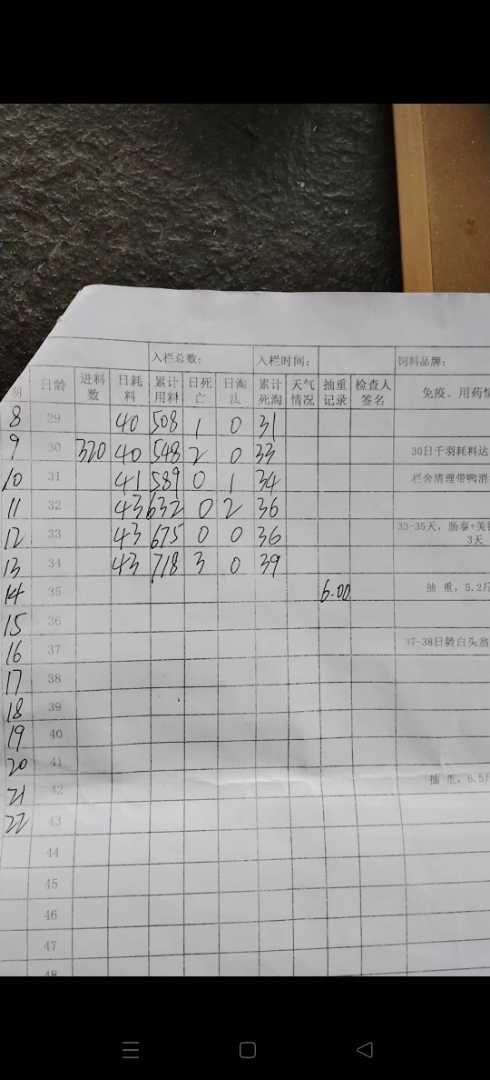 入栏总数: 入栏时间: 饲料品牌:
日龄 进料数 日耗料 累计用料 日死亡 日淘汰 累计死淘 天气情况 抽重记录 检查人签名 免疫、用药情
8 29 40 508 1 0 31
9 30 320 40 548 2 0 33 30日千羽耗料达
10 31 41 589 0 1 34 栏舍清理带鸭消
11 32 43 632 0 2 36
12 33 43 675 0 0 36 33-35天，肠泰+美
13 34 43 718 3 0 39 3天
14 35 6.00 抽重，5.2斤
15 36
16 37 37-38日龄白头翁
17 38
18 39
19 40
20 41
21 42 抽重，6.5斤
22 43
44
45
46
47
48